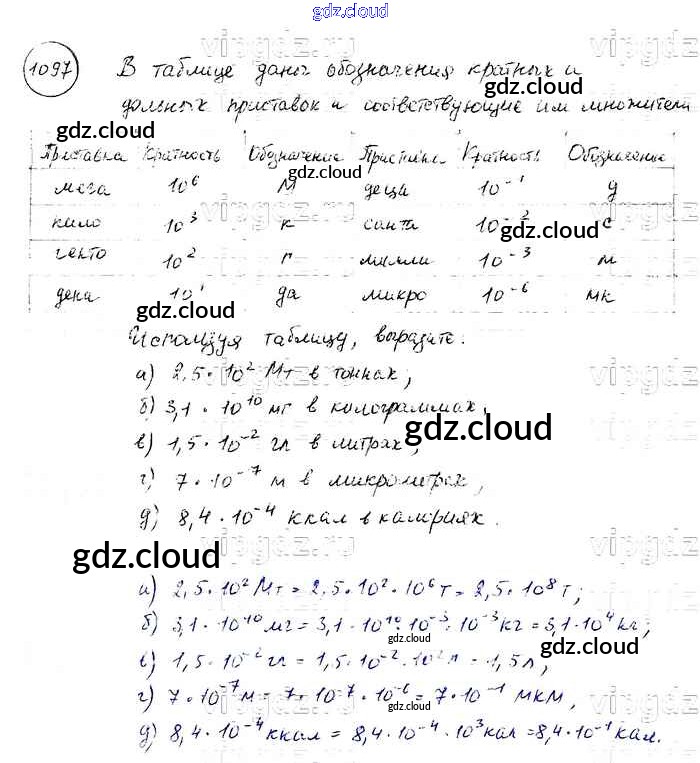 gdz.cloud
1097 В таблице даны обозначения кратных и
дольных приставок и соответствующие им множители
gdz.cloud
Приставка Кратность Обозначение Приставка Кратность Обозначение
gdz.cloud
мега 10⁶ М деци 10⁻¹ д
кило 10³ к санти 10⁻² с
gdz.cloud
гекто 10² г милли 10⁻³ м
дека 10¹ да микро 10⁻⁶ мк
gdz.cloud
Используя таблицу, выразите:
а) 2,5·10² Мт в тоннах;
б) 3,1·10¹⁰ мг в колограммах;
gdz.cloud
в) 1,5·10⁻² гл в литрах;
г) 7·10⁻⁷ м в микрометрах;
д) 8,4·10⁻⁴ ккал в калориях.
gdz.cloud
а) 2,5·10² Мт = 2,5·10²·10⁶ т = 2,5·10⁸ т;
б) 3,1·10¹⁰ мг = 3,1·10¹⁰·10⁻³·10⁻³ кг = 3,1·10⁴ кг;
gdz.cloud
в) 1,5·10⁻² гл = 1,5·10⁻²·10² л = 1,5 л;
г) 7·10⁻⁷ м = 7·10⁻⁷·10⁻⁶ = 7·10⁻¹ мкм,
gdz.cloud
д) 8,4·10⁻⁴ ккал = 8,4·10⁻⁴·10³ кал = 8,4·10⁻¹ кал.